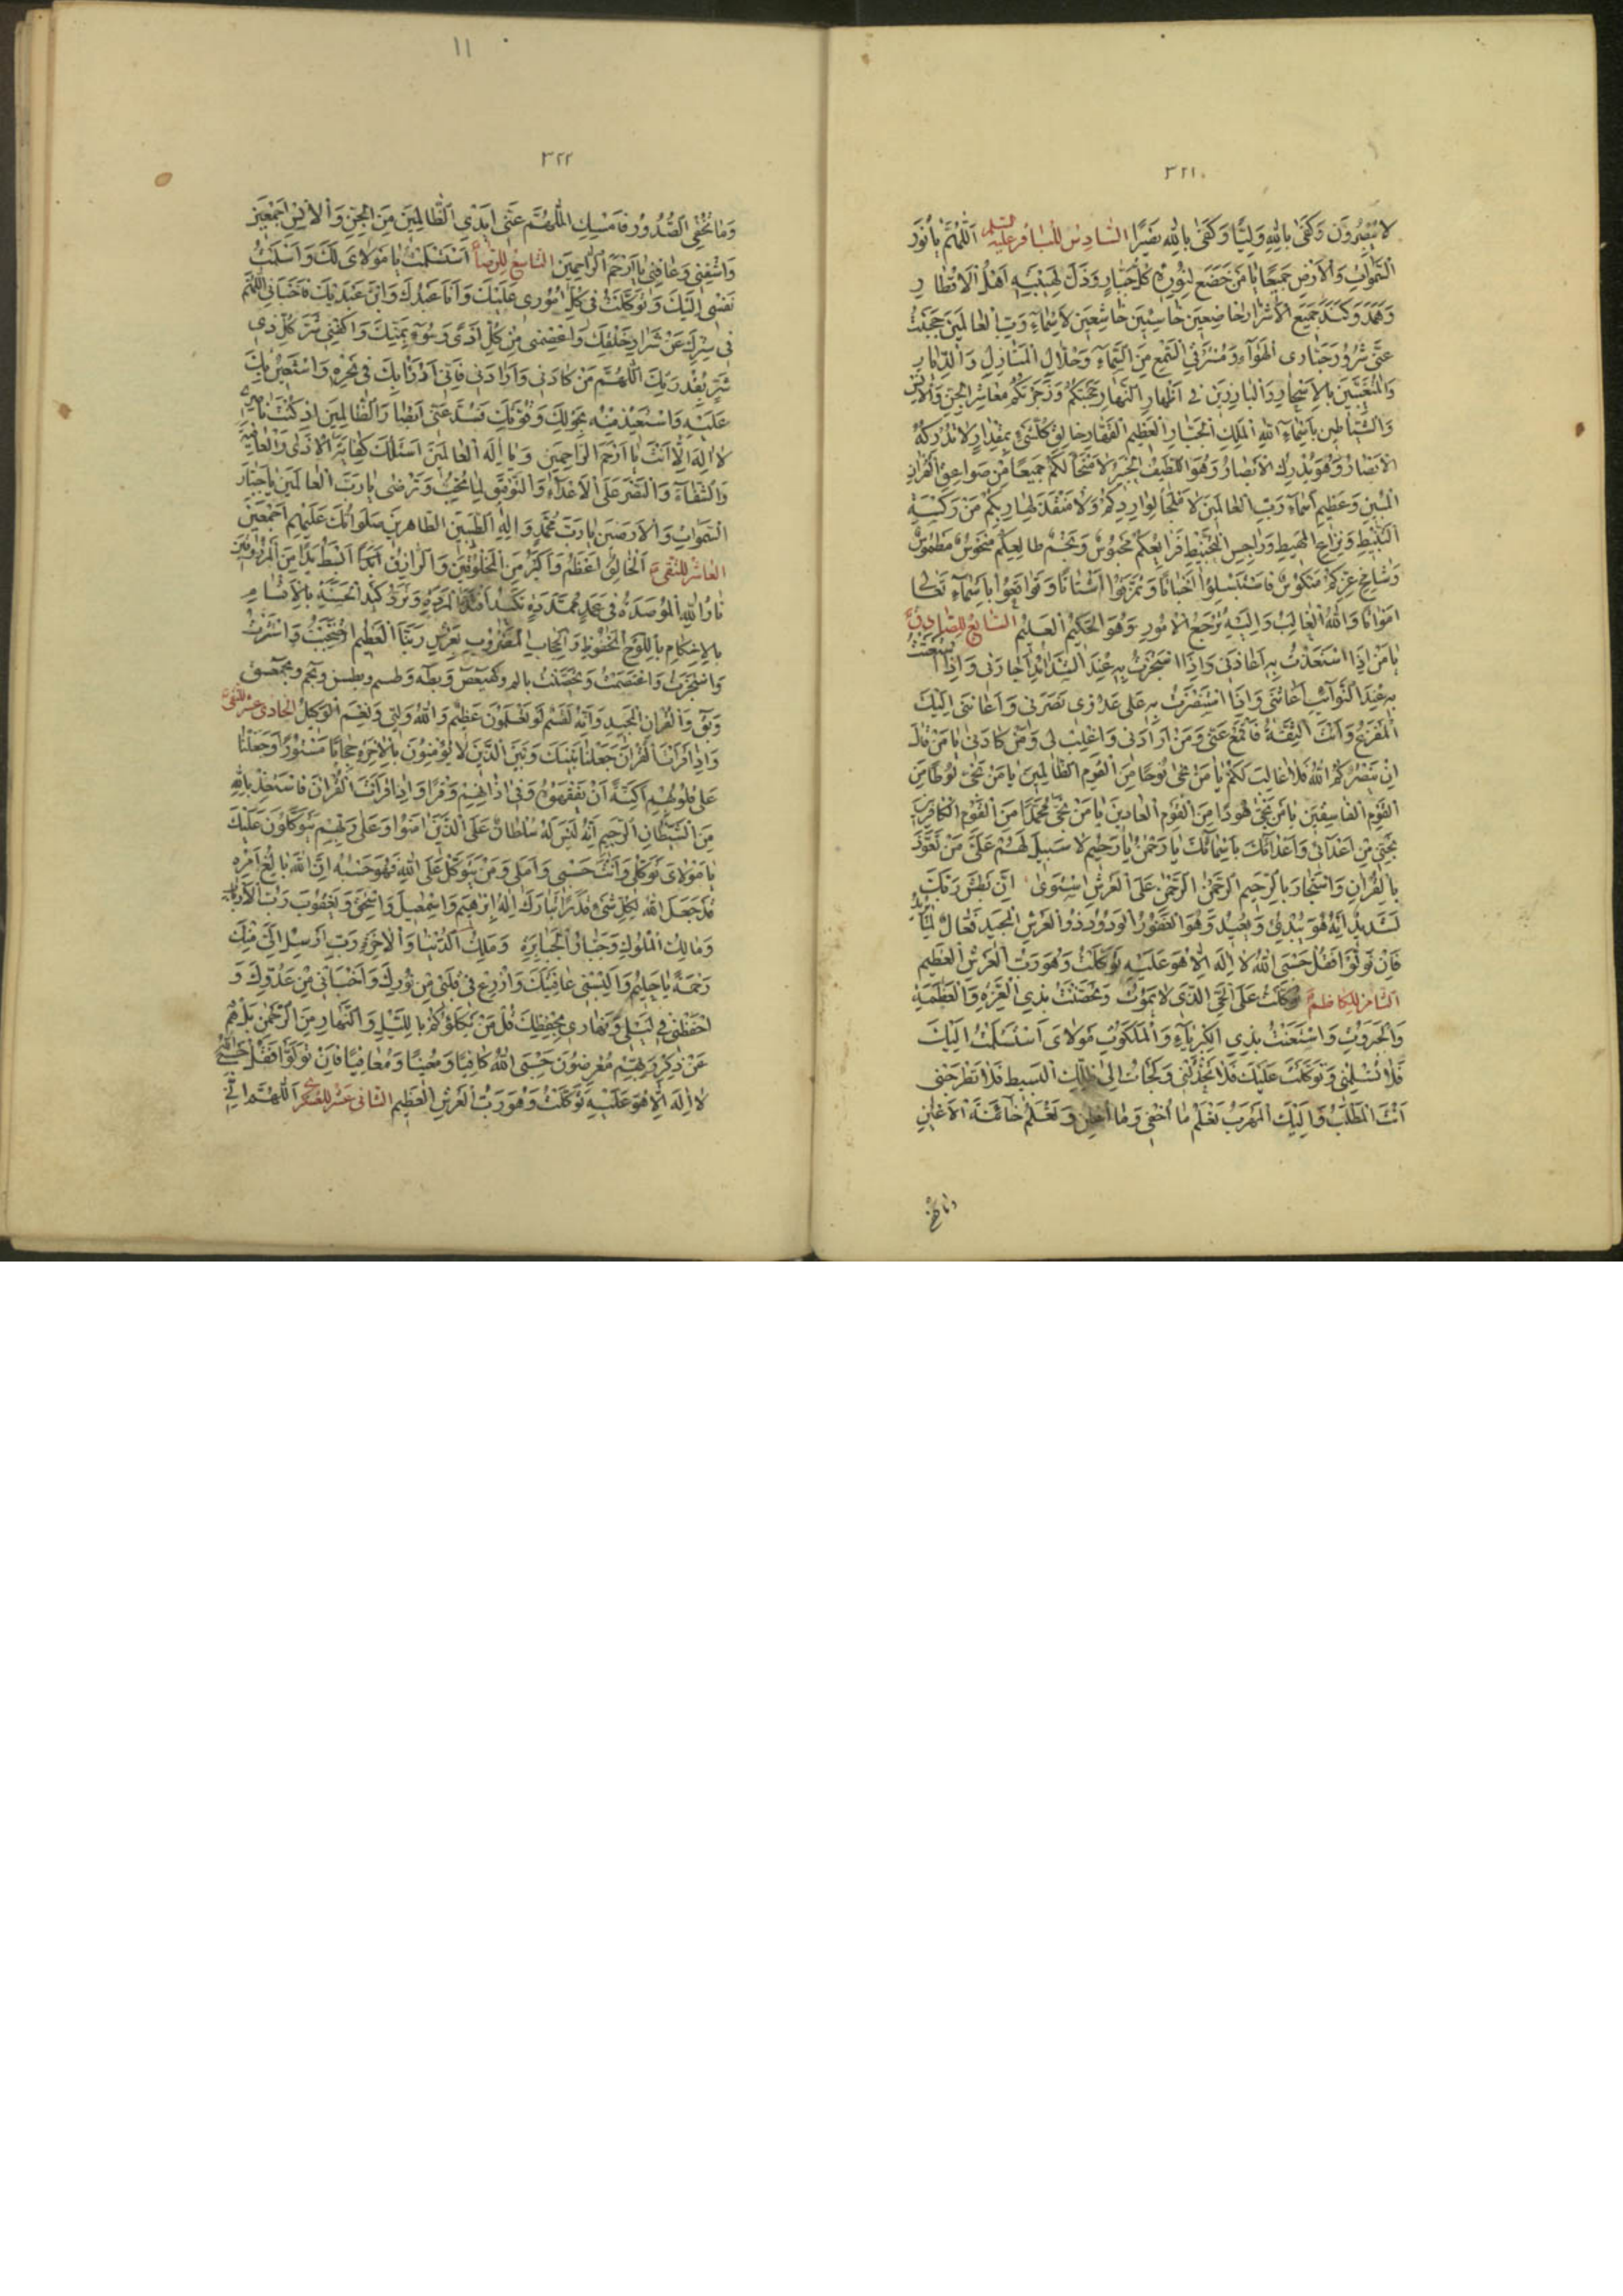 ٣٢١
لا يبصرون وكفى بالله وليا وكفى بالله نصيرا السادس للباقر عليه السلم اللهم يا نور
السموات والارض جميعا يا من خضع لنوره كل جبار وذل لهيبته اهل الاقطار
وهمد وكند جميع الاشرار خاضعين خاسئين خاشعين لاسماء رب العالمين حجبت
عني شرور جبارى الهواء ومسترقي السمع من السماء وحلال المنازل والديار
والمتغيبين بالاسحار والبارزين في اظهار النهار حجبتكم وزجرتكم معاشر الجن والانس
والشياطين باسماء الله الملك الجبار العظيم القهار خالق كل شيء بمقدار لا تدركه
الابصار وهو يدرك الابصار وهو اللطيف الخبير لا منجا لكم جميعا من صواعق القران
المبين وعظيم اسماء رب العالمين لا ملجأ لواردكم ولا منقذ لهاربكم من ركسة
التثبيط ونزاع المهيط ورواجس التخبيط فرايعكم محبوس ونجم طالعكم منحوس مطموس
وشامخ عزكم منكوس فاستبسلوا اخباتا وتمزقوا اشتاتا وتواقعوا باسماء تعالى
امواتا والله الغالب واليه ترجع الامور وهو الحكيم العليم السابع للصادق
يا من اذا استعذت به اعاذنى واذا استجرت به عند الشدائد اجارنى واذا استغثت
به عند النوائب اغاثنى واذا استنصرت به على عدوى نصرنى واعاننى اليك
المفزع وانت الثقة فاقمع عنى ومن ارادنى واغلب لى ومن كادنى يا من قال
ان ينصركم الله فلا غالب لكم يا من نجى نوحا من القوم الظالمين يا من نجى لوطا من
القوم الفاسقين يا من نجى هودا من القوم العادين يا من نجى محمدا من القوم الكافرين
نجنى من اعدائى واعدائك باسمائك يا رحمن يا رحيم لا سبيل لهم على من تعوذ
بالقران واستجار بالرحيم الرحمن الرحمن على العرش استوى ان بطش ربك
لشديد انه هو يبدئ ويعيد وهو الغفور الودود ذو العرش المجيد فعال لما يريد
فان تولوا فقل حسبى الله لا اله الا هو عليه توكلت وهو رب العرش العظيم
الثامن للكاظم توكلت على الحى الذى لا يموت وتحصنت بذى العزة والعظمة
والجبروت واستعنت بذى الكبرياء والملكوت مولاى استسلمت اليك
فلا تسلمنى وتوكلت عليك فلا تخذلنى ولجأت الى ظلك البسيط فلا تطرحنى
انت المطلب واليك المهرب تعلم ما اخفى وما اعلن وتعلم خائنة الاعين
وما تخفى
١١
٣٢٢
وما تخفى الصدور فامسك اللهم عنى ايدى الظالمين من الجن والانس اجمعين
واشفنى وعافنى يا ارحم الراحمين التاسع للرضا استسلمت يا مولاى لك واسلمت
نفسى اليك وتوكلت فى كل امورى عليك وانا عبدك وابن عبديك فاخبانى اللهم
فى سترك عن شرار خلقك واعصمنى من كل اذى وسوء بمنك واكفنى شر كل ذى
شر بقدرتك اللهم من كادنى وارادنى فانى ادرأ بك فى نحره واستعين بك
عليه واستعيذ منه بحولك وقوتك وسد عنى ابصار الظالمين اذ كنت ناصرى
لا اله الا انت يا ارحم الراحمين ويا اله العالمين اسئلك كفاية الاذى والعافية
والشفاء والنصر على الاعداء والتوفيق لما تحب وترضى يا رب العالمين يا جبار
السموات والارضين يا رب محمد واله الطيبين الطاهرين صلواتك عليهم اجمعين
العاشر للتقى الخالق اعظم واكبر من المخلوقين والرازق ابسط يدا من المرزوقين
نار الله المؤصدة فى عمد ممددة تكيد افئدة المردة وترد كيد الحسدة بالاقسام
بالاحكام باللوح المحفوظ والحجاب المضروب بعرش ربنا العظيم احتجبت واستترت
واستجرت واعتصمت وتحصنت بالم وكهيعص وبطه وطسم وبطس وبحم وبحمعسق
ون وق والقران المجيد وانه لقسم لو تعلمون عظيم والله وليى ونعم الوكيل الحادى عشر للنقى
واذا قرأت القران جعلنا بينك وبين الذين لا يؤمنون بالاخرة حجابا مستورا وجعلنا
على قلوبهم اكنة ان يفقهوه وفى اذانهم وقرا واذا قرأت القران فاستعذ بالله
من الشيطان الرجيم انه ليس له سلطان على الذين امنوا وعلى ربهم يتوكلون عليك
يا مولاى توكلى وانت حسبى واملى ومن يتوكل على الله فهو حسبه ان الله بالغ امره
قد جعل الله لكل شىء قدرا تبارك اله ابرهيم واسمعيل واسحق ويعقوب رب الارباب
ومالك الملوك وجبار الجبابرة وملك الدنيا والاخرة رب ارسل الى منك
رحمة يا حليم والبسنى عافيتك وازرع فى قلبى من نورك واخبأنى من عدوك و
احفظنى فى ليلى ونهارى بحفظك قل من يكلؤكم بالليل والنهار من الرحمن بل هم
عن ذكر ربهم معرضون حسبى الله كافيا ومعينا ومعافيا فان تولوا فقل حسبى الله
لا اله الا هو عليه توكلت وهو رب العرش العظيم الثانى عشر للعسكرى اللهم انى